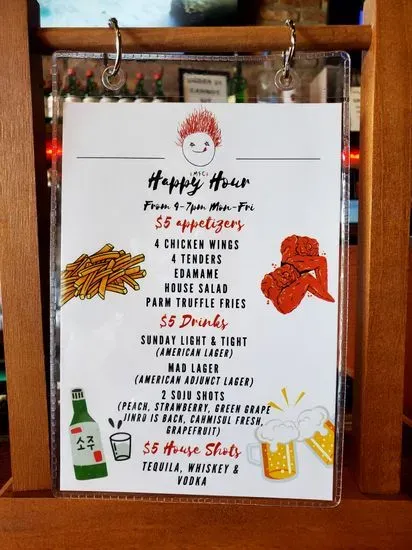 UNDER 21
CANNOT
(MSC)
Happy Hour
From 4-7pm Mon-Fri
$5 appetizers
4 CHICKEN WINGS
4 TENDERS
EDAMAME
HOUSE SALAD
PARM TRUFFLE FRIES
$5 Drinks
SUNDAY LIGHT & TIGHT
(AMERICAN LAGER)
MAD LAGER
(AMERICAN ADJUNCT LAGER)
2 SOJU SHOTS
(PEACH, STRAWBERRY, GREEN GRAPE
JINRO IS BACK, CAHMISUL FRESH,
GRAPEFRUIT)
소주
$5 House Shots
TEQUILA, WHISKEY &
VODKA